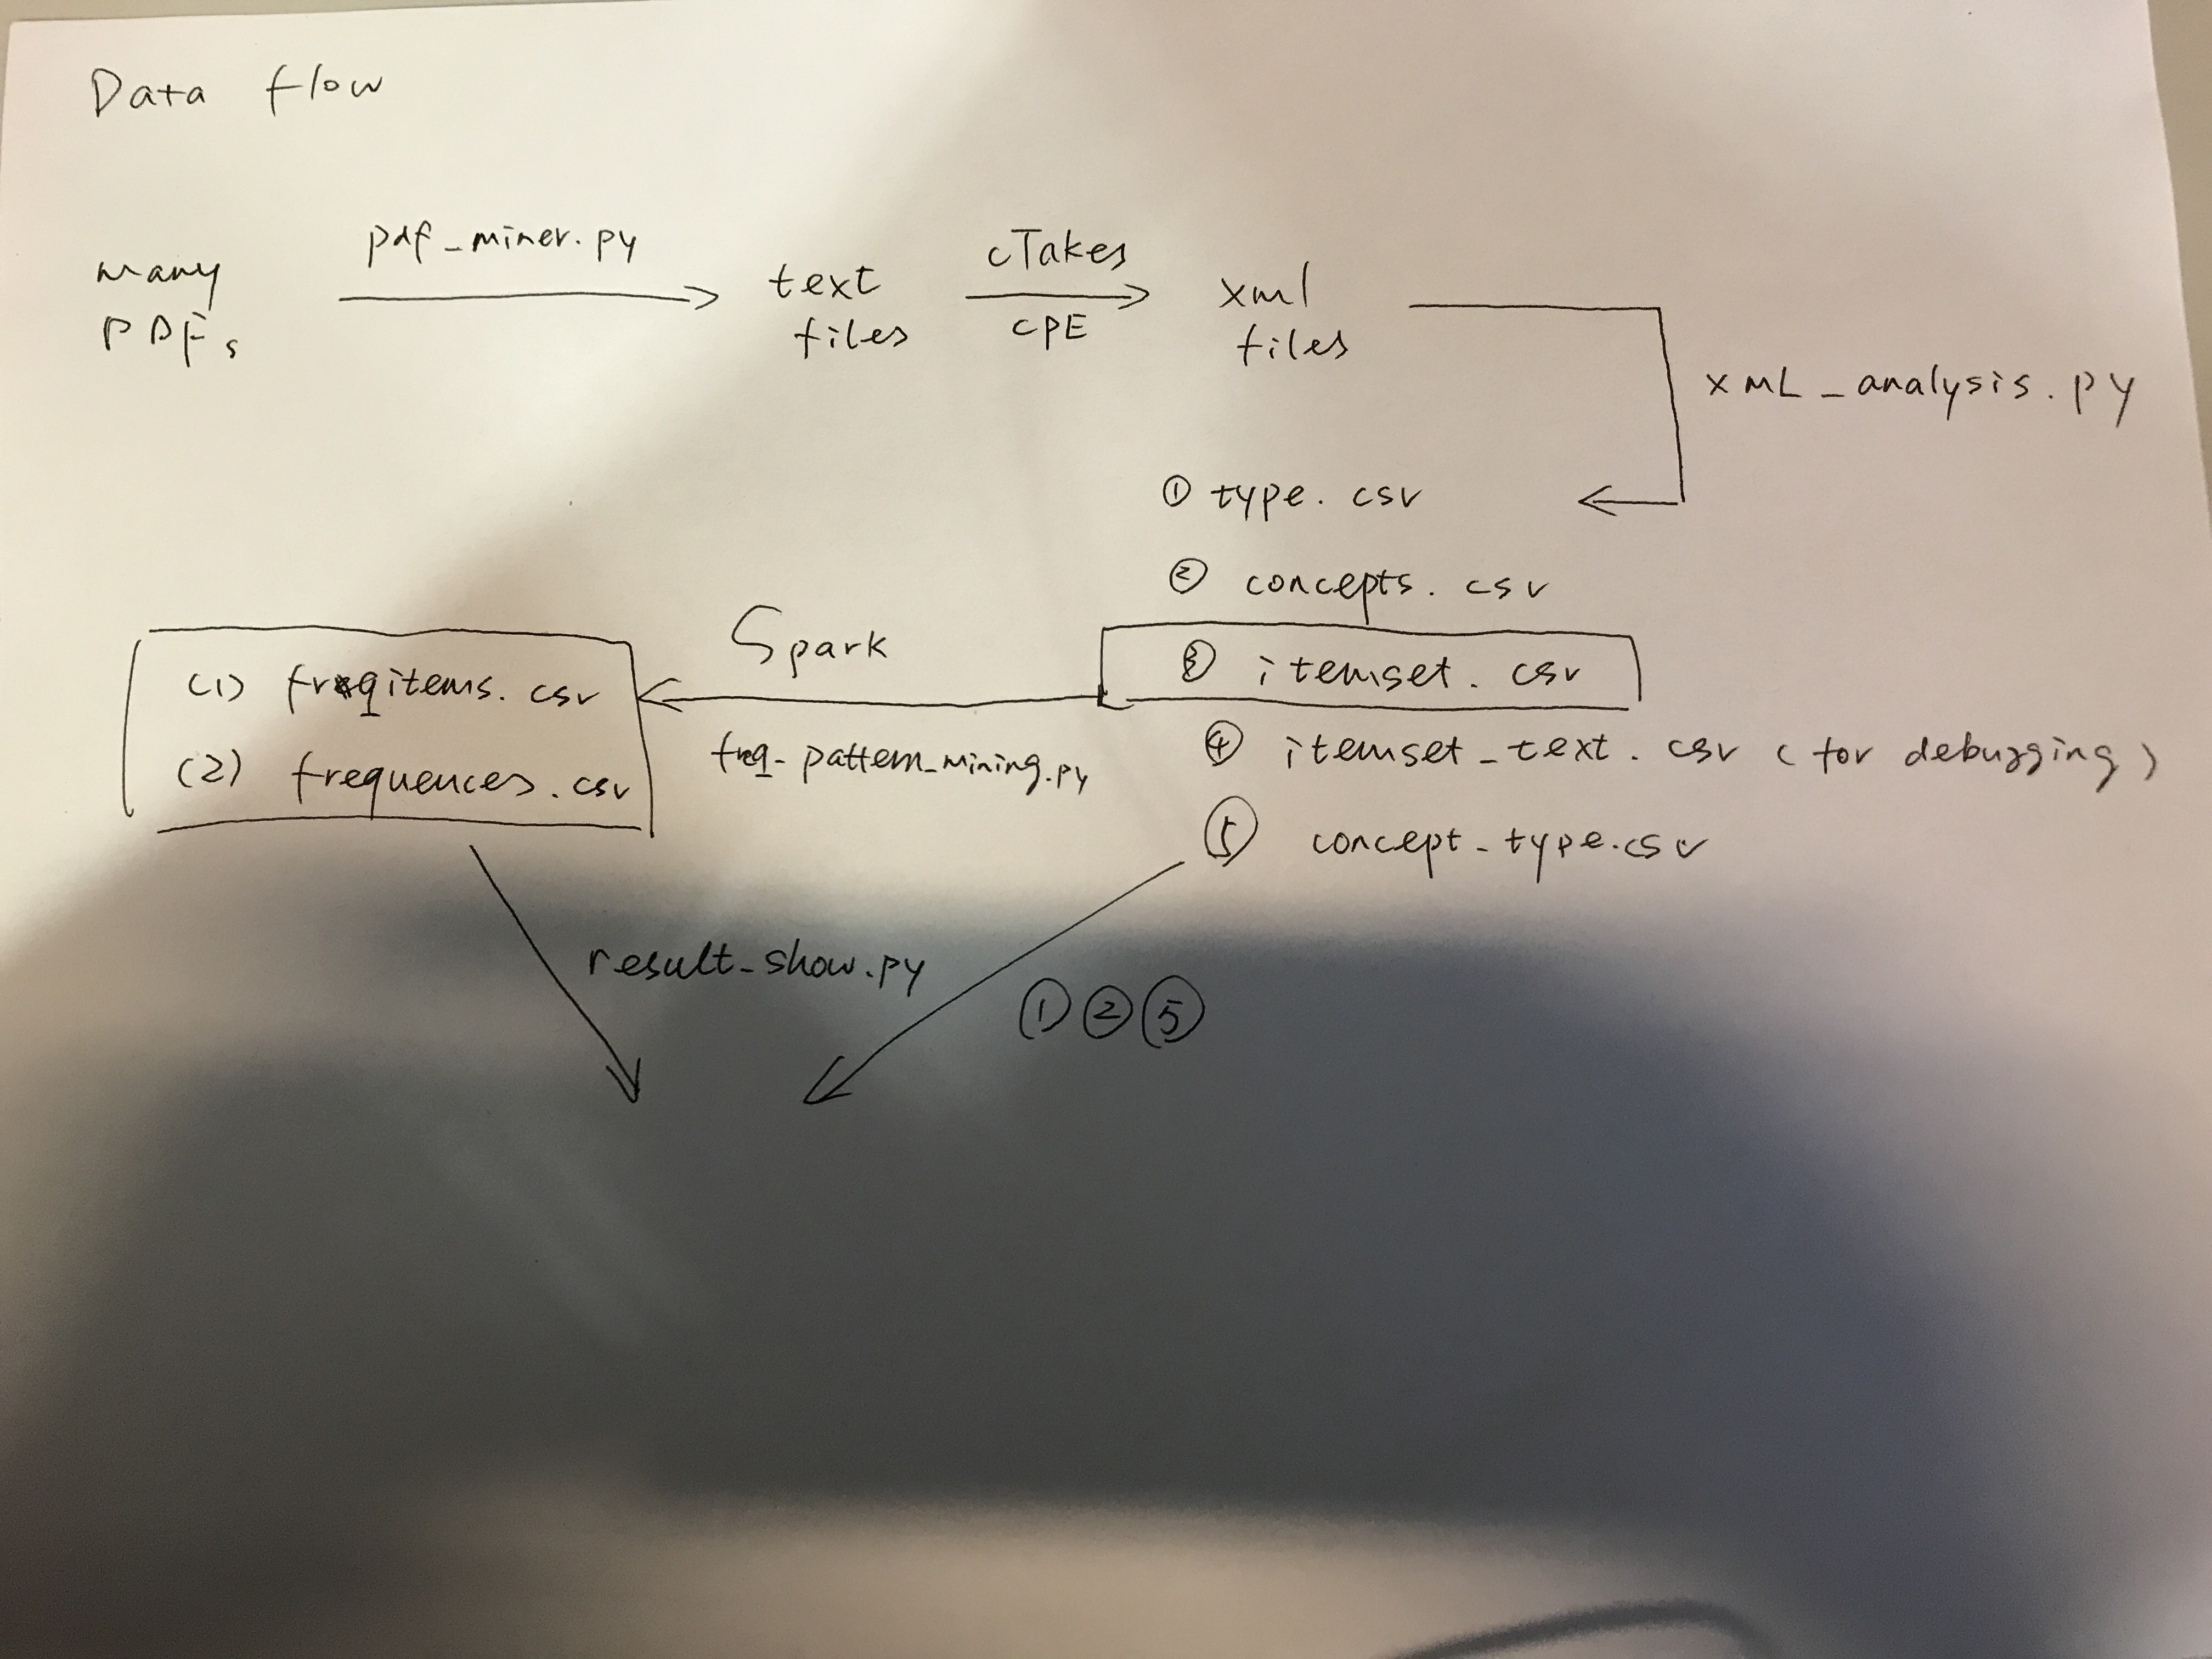 Data flow
many PDFs
pdf-miner.py
text files
cTakes CPE
xml files
xmL_analysis.py
① type.csv
② concepts.csv
③ itemset.csv
④ itemset_text.csv (for debugging)
⑤ concept-type.csv
Spark
freq-pattern_mining.py
(1) freqitems.csv
(2) frequences.csv
result_show.py
① ② ⑤